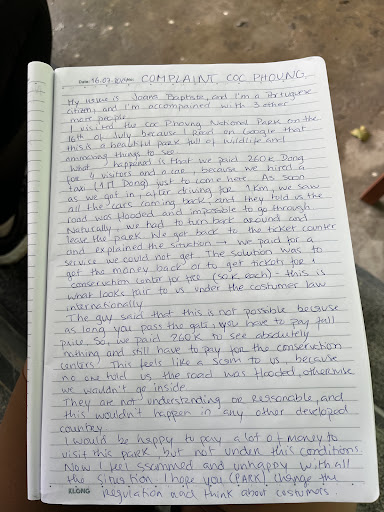 Date: 16.07.2024 COMPLAINT, COC PHOUNG
My name is Joana Baptista, and I'm a Portuguese
citizen, and I'm accompained with 3 other
more people.
I visited the Coc Phoung National Park on the
16th of July because I read on Google that
this is a beautiful park full of wildlife and
ammazing things to see.
What happened is that we paid 260K Dong
for 4 visitors and a car, because we hired a
taxi (1M Dong) just to come here. As soon
as we got in, after driving for 1Km, we saw
all the cars coming back, and they told us the
road was flooded and impossible to go through
Naturally, we had to turn back around and
leave the park. We got back to the ticket counter
and explained the situation → we paid for a
service we could not get. The solution was to
get the money back or to get tickets for 1
conservation center for free (50K each) - this is
what looks fair to us under the costumer law
internationally
The guy said that this is not possible because
as long you pass the gate, you have to pay full
price. So, we paid 260K to see absolutely
nothing and still have to pay for the conservation
centers! This feels like a scam to us, because
no one told us the road was flooded, otherwise
we wouldn't go inside.
They are not understanding or reasonable, and
this wouldn't happen in any other developed
country
I would be happy to pay a lot of money to
visit this park, but not under this conditions.
Now I feel scammed and unhappy with all
the situation. I hope you (PARK) change the
KLONG regulation and think about costumers.